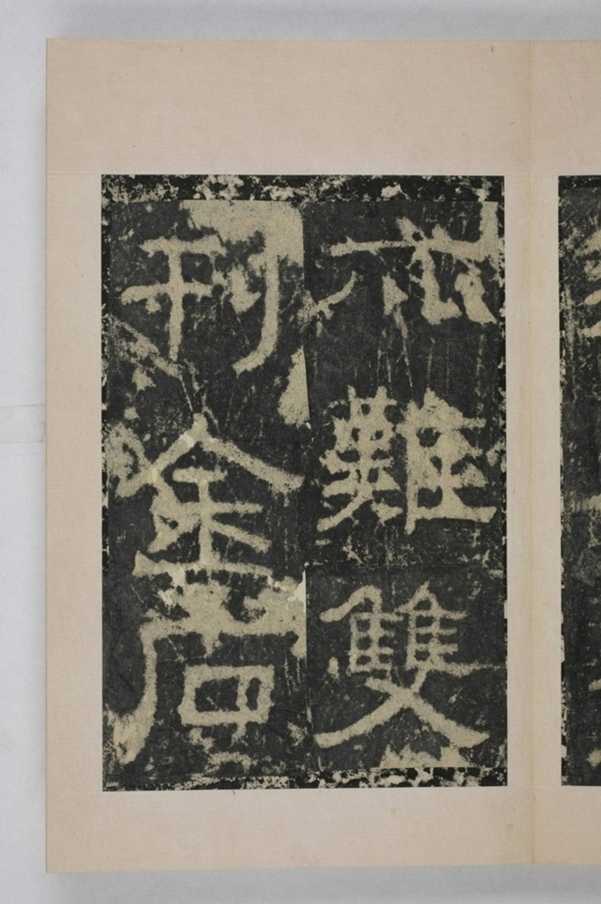 難雙
刊金石